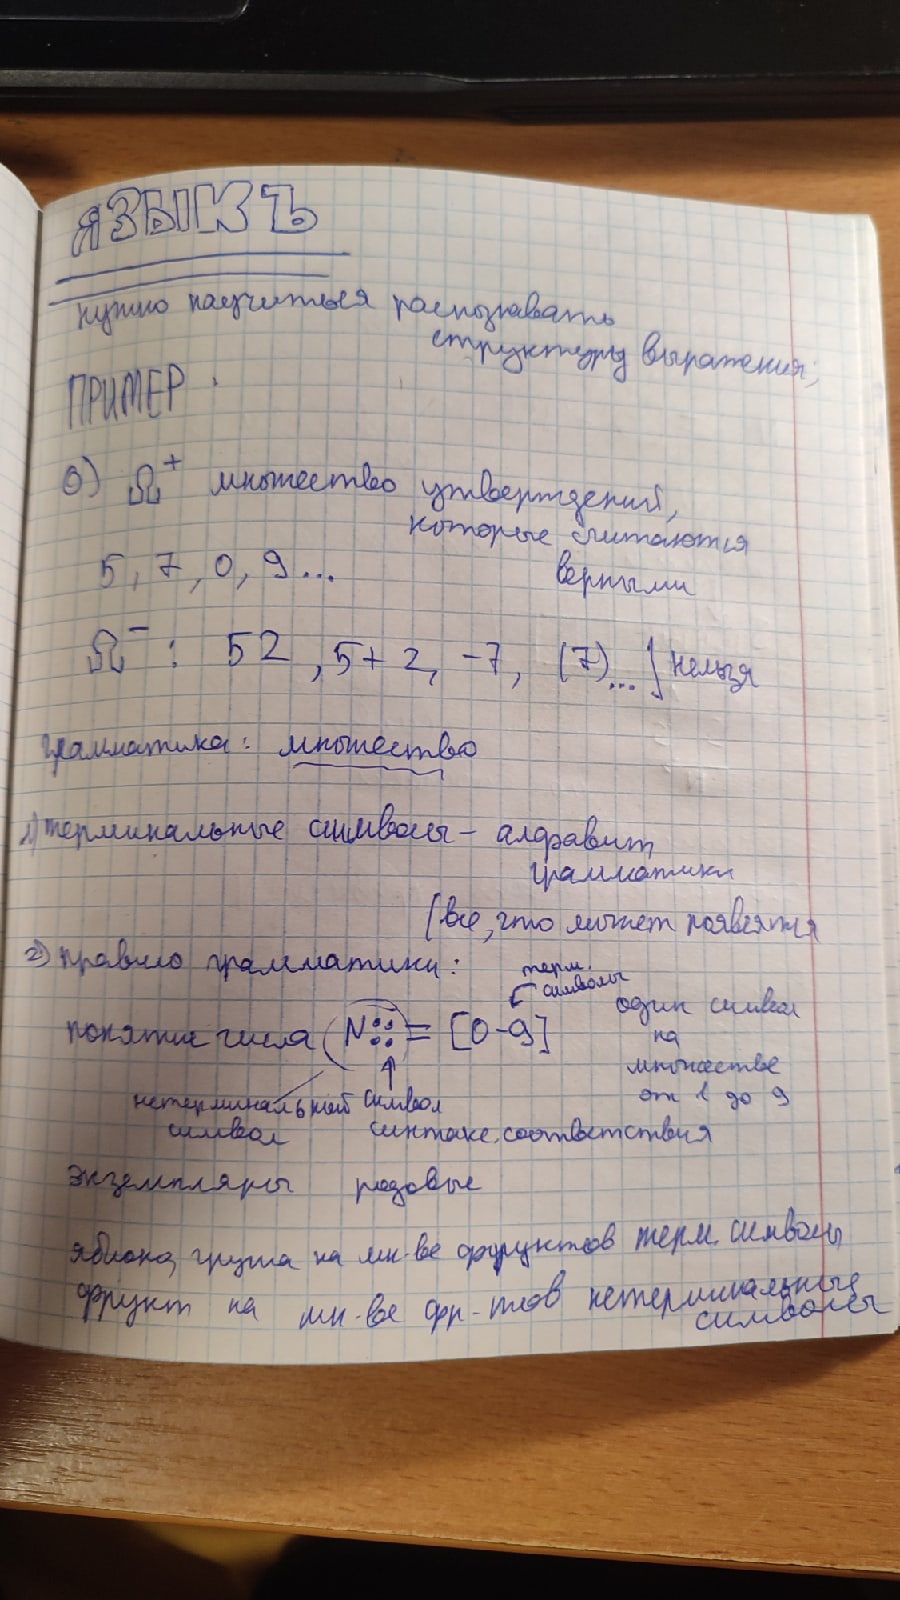 ЯЗЫКЪ
нужно научиться распознавать
структуру выражения;
ПРИМЕР:
0) Ω⁺ множество утверждений,
которые считаются
5, 7, 0, 9... верными
Ω⁻ : 52, 5+2, -7, (7)... } нельзя
грамматика: множество
1) терминальные символы - алфавит
грамматики
(все, что может появится
2) правило грамматики: терм.
символы
понятие числа (N::= [0-9] один символ
на
множестве
от 1 до 9
нетерминальный символ
символ синтакс. соответствия
экземпляры родовые
яблоко, груша на мн-ве фруктов терм. символы
фрукт на мн-ве фр-тов нетерминальные
символы